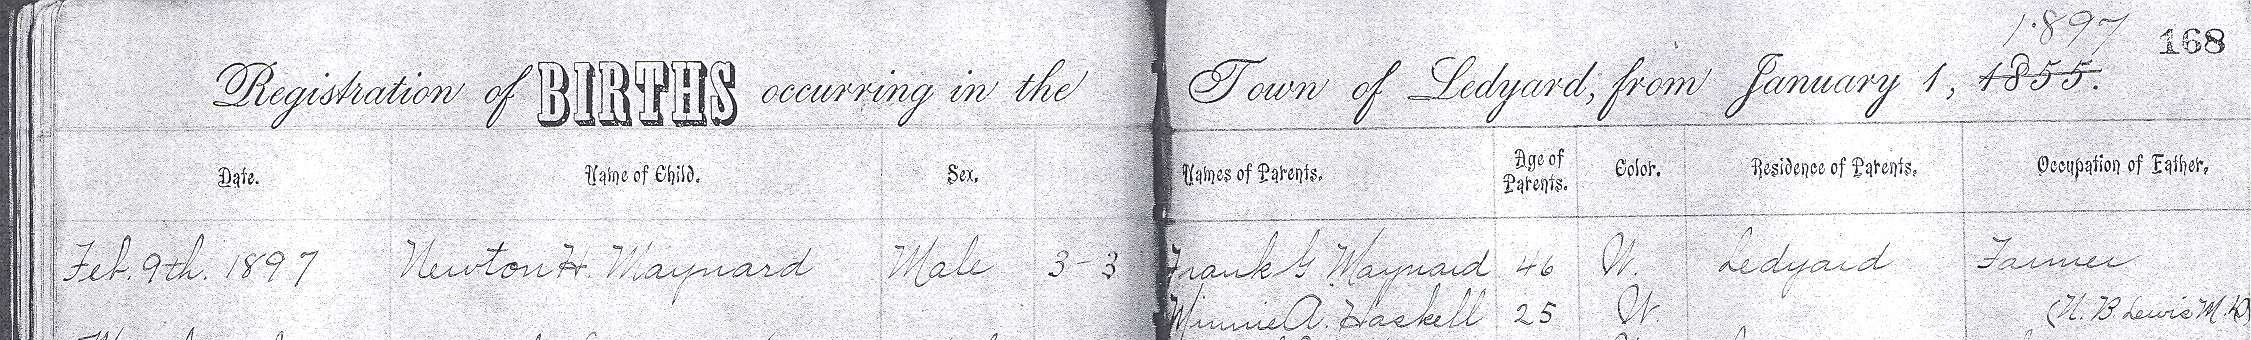 1897 168
Registration of BIRTHS occurring in the Town of Ledyard, from January 1, 1855.
Date. Name of Child. Sex. Names of Parents. Age of Parents. Color. Residence of Parents. Occupation of Father.
Feb. 9th. 1897 Newton H. Maynard Male 3-3 Frank G Maynard 46 W. Ledyard Farmer
Minnie A. Haskell 25 W. (N. B Lewis M.D)